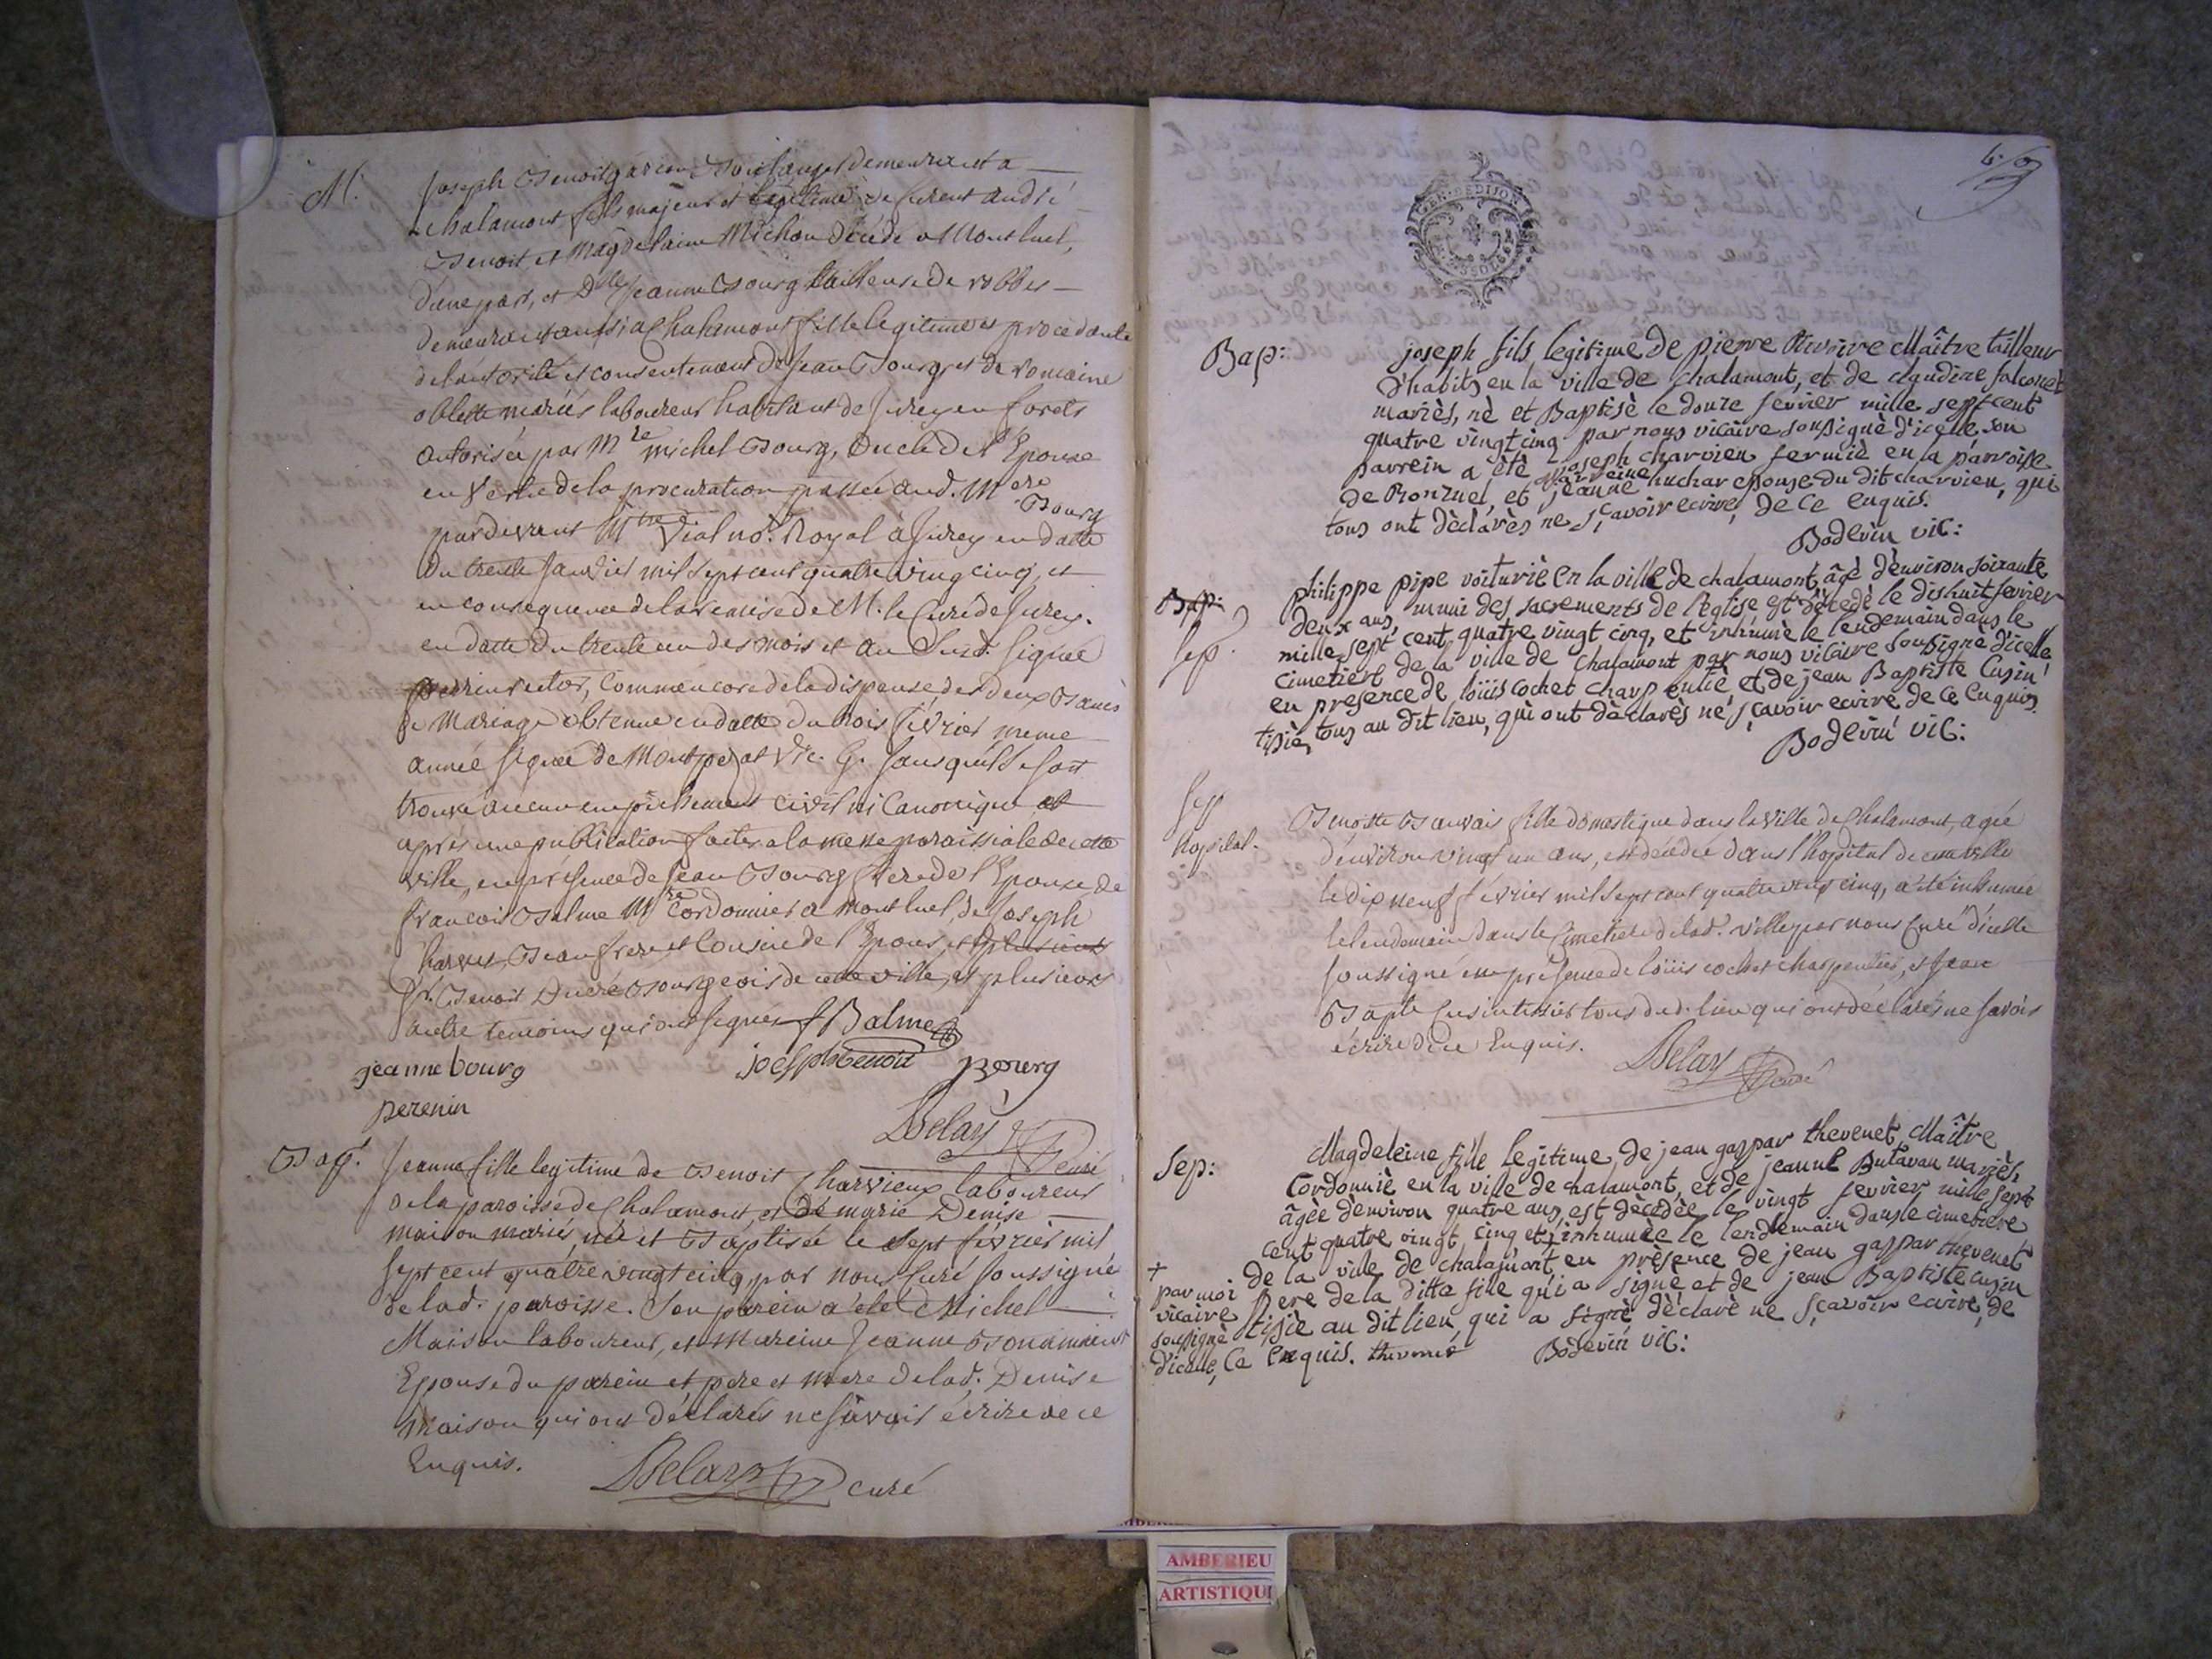 M. Joseph Benoit garcon Boulanger demeurant a
chalamont fils majeur et legitime de furent andré
Benoit et Magdelaine Michon décédé a Montluel,
d'une part, et Dlle Jeanne Bourg tailleuse de robbes
demeurant aussi a Chalamont fille legitime et procedante
de l'autorité et consentement de Jean Bourg et de romaine
oblette mariés laboureur habitant de Jurey en forets
autorisée par Mre michel Bourg, oncle de l'Epouse
en vertu de la procuration passée aud. Mere
Bourg
pardevant Mtre Vial not. Royal à Jurey en datte
du trente Janvier mil sept cent quatre vingt cinq, et
en consequence de la remise de M. le Curé de Jurey.
en datte du trente un des mois et an susd. signée
recteur, comme encore de la dispense des deux Bancs
de Mariage obtenue en datte du trois fevrier meme
année signée de Montperat Vic. G. sans qu'il se soit
trouvé aucun empechement civil ni Canonique et
après une publication faites a la messe paroissiale de cette
ville, en présence de Jean Bourg frere de l'Epouse de
francois Balme Mre Cordonnier a Montluel, de Joseph
harvet Beaufrere et Cousin de l'Epoux, et plusieurs
Sr. Benoit Ducré Bourgeois de cette ville, et plusieurs
autre temoins qui ont signés f Balme
jeanne bourg joesph Benoit Bourg
perenin
Delay curé
Bap. Jeanne fille legitime de Benoit Charvieux laboureur
de la paroisse de Chalamont et de marie Denise
maison mariés, née et Baptisée le sept fevrier mil
sept cent quatre vingt cinq, par nous Curé soussigné
de lad. paroisse. Son parein a été Michel
Maison laboureur, et Mareine Jeanne Bonamient
Epouse du parein et pere et mere de lad. Denise
Maison qui ont déclarés ne savoir écrire de ce
Enquis.
Delay curé
GEN. DE DIJON
Bap: joseph fils legitime de pierre Rivoire Maître tailleur
d'habits en la ville de chalamont, et de claudine falconet
mariès, nè et Baptisè le douze fevrier mille sept cent
quatre vingt cinq par nous vicaire soussignè d'icelle, son
parrein a ètè joseph charvieu fermiè en la parroisse
de Ronzuel, et marreine jeanne huchar epouse du dit charvieu, qui
tous ont dèclarès ne sçavoir ecrire, de ce enquis.
Bodevin vic:
Bap:
Sep. philippe pipe voiturié en la ville de chalamont, âgè d'environ soixante
deux ans, muni des sacrements de l'eglise est dècedè le dishuit fevrier
mille sept cent quatre vingt cinq, et inhumè le lendemain dans le
cimetiere de la ville de chalamont par nous vicaire soussignè d'icelle
en presence de loüis cochet charpentiè, et de jean Baptiste Cusin
tisiè, tous au dit lieu, qui ont dèclarès ne sçavoir ecrire de ce enquis.
Bodevin vic:
Sep
hopital. Benoitte Bauvais fille domestique dans la ville de Chalamont, agée
d'environ vingt un ans, est décédée dans l'hopital de cette ville
le dix neuf fevrier mil sept cent quatre vingt cinq, a été inhumée
le lendemain dans le Cimetiere de lad. ville par nous Curé d'icelle
soussigné en présence de loüis cochet charpentier, et Jean
Bapte Cusin tissier tous dud. lieu qui ont déclarés ne savoir
écrire de ce Enquis.
Delay curé
Sep: Magdeleine fille legitime, de jean gaspar thevenet Maître
Cordonniè en la ville de chalamont, et de jeanne Butavan mariès,
âgèe d'environ quatre ans, est dècèdèe le vingt fevrier mille sept
cent quatre vingt cinq et inhumèe le lendemain dans le cimetiere
+ de la ville de chalamont en prèsence de jean gaspar thevenet
par moi pere de la ditte fille qui a signè et de jean Baptiste cusin
vicaire tisiè au dit lieu qui a signè dèclarè ne sçavoir ecrire, de
soussignè
d'icelle, ce enquis. thevenet Bodevin vic:
AMBERIEU
ARTISTIQU